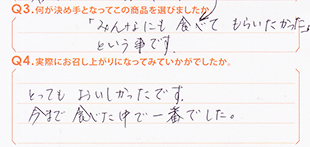 Q3.何が決め手となってこの商品を選びましたか
「みんなにも食べて もらいたかった」
という事です.
Q4.実際にお召し上がりになってみていかがでしたか。
とっても おいしかったです.
今まで 食べた中で一番でした。